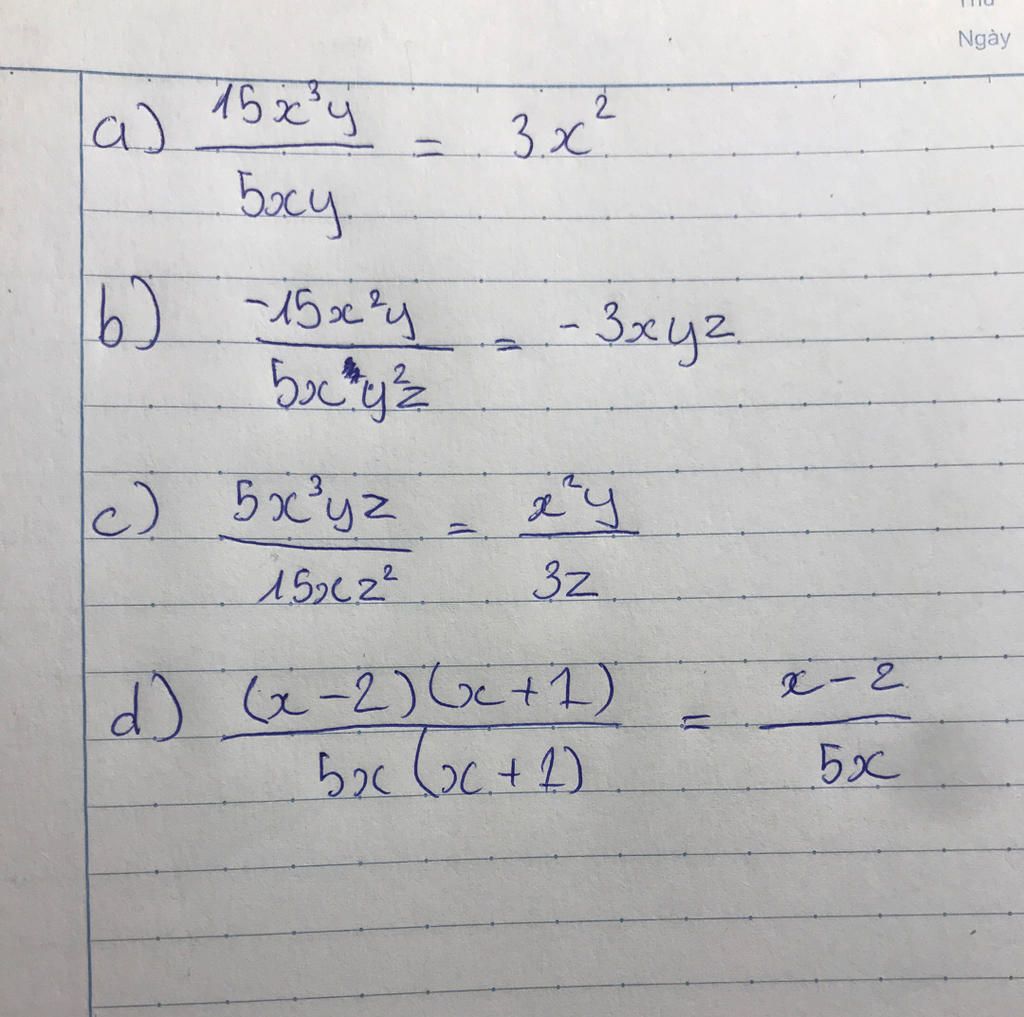 Ngày
a) 15x³y / 5xy = 3x²
b) -15x²y / 5xy²z = -3xyz
c) 5x³yz / 15xz² = x²y / 3z
d) (x-2)(x+1) / 5x(x+1) = x-2 / 5x